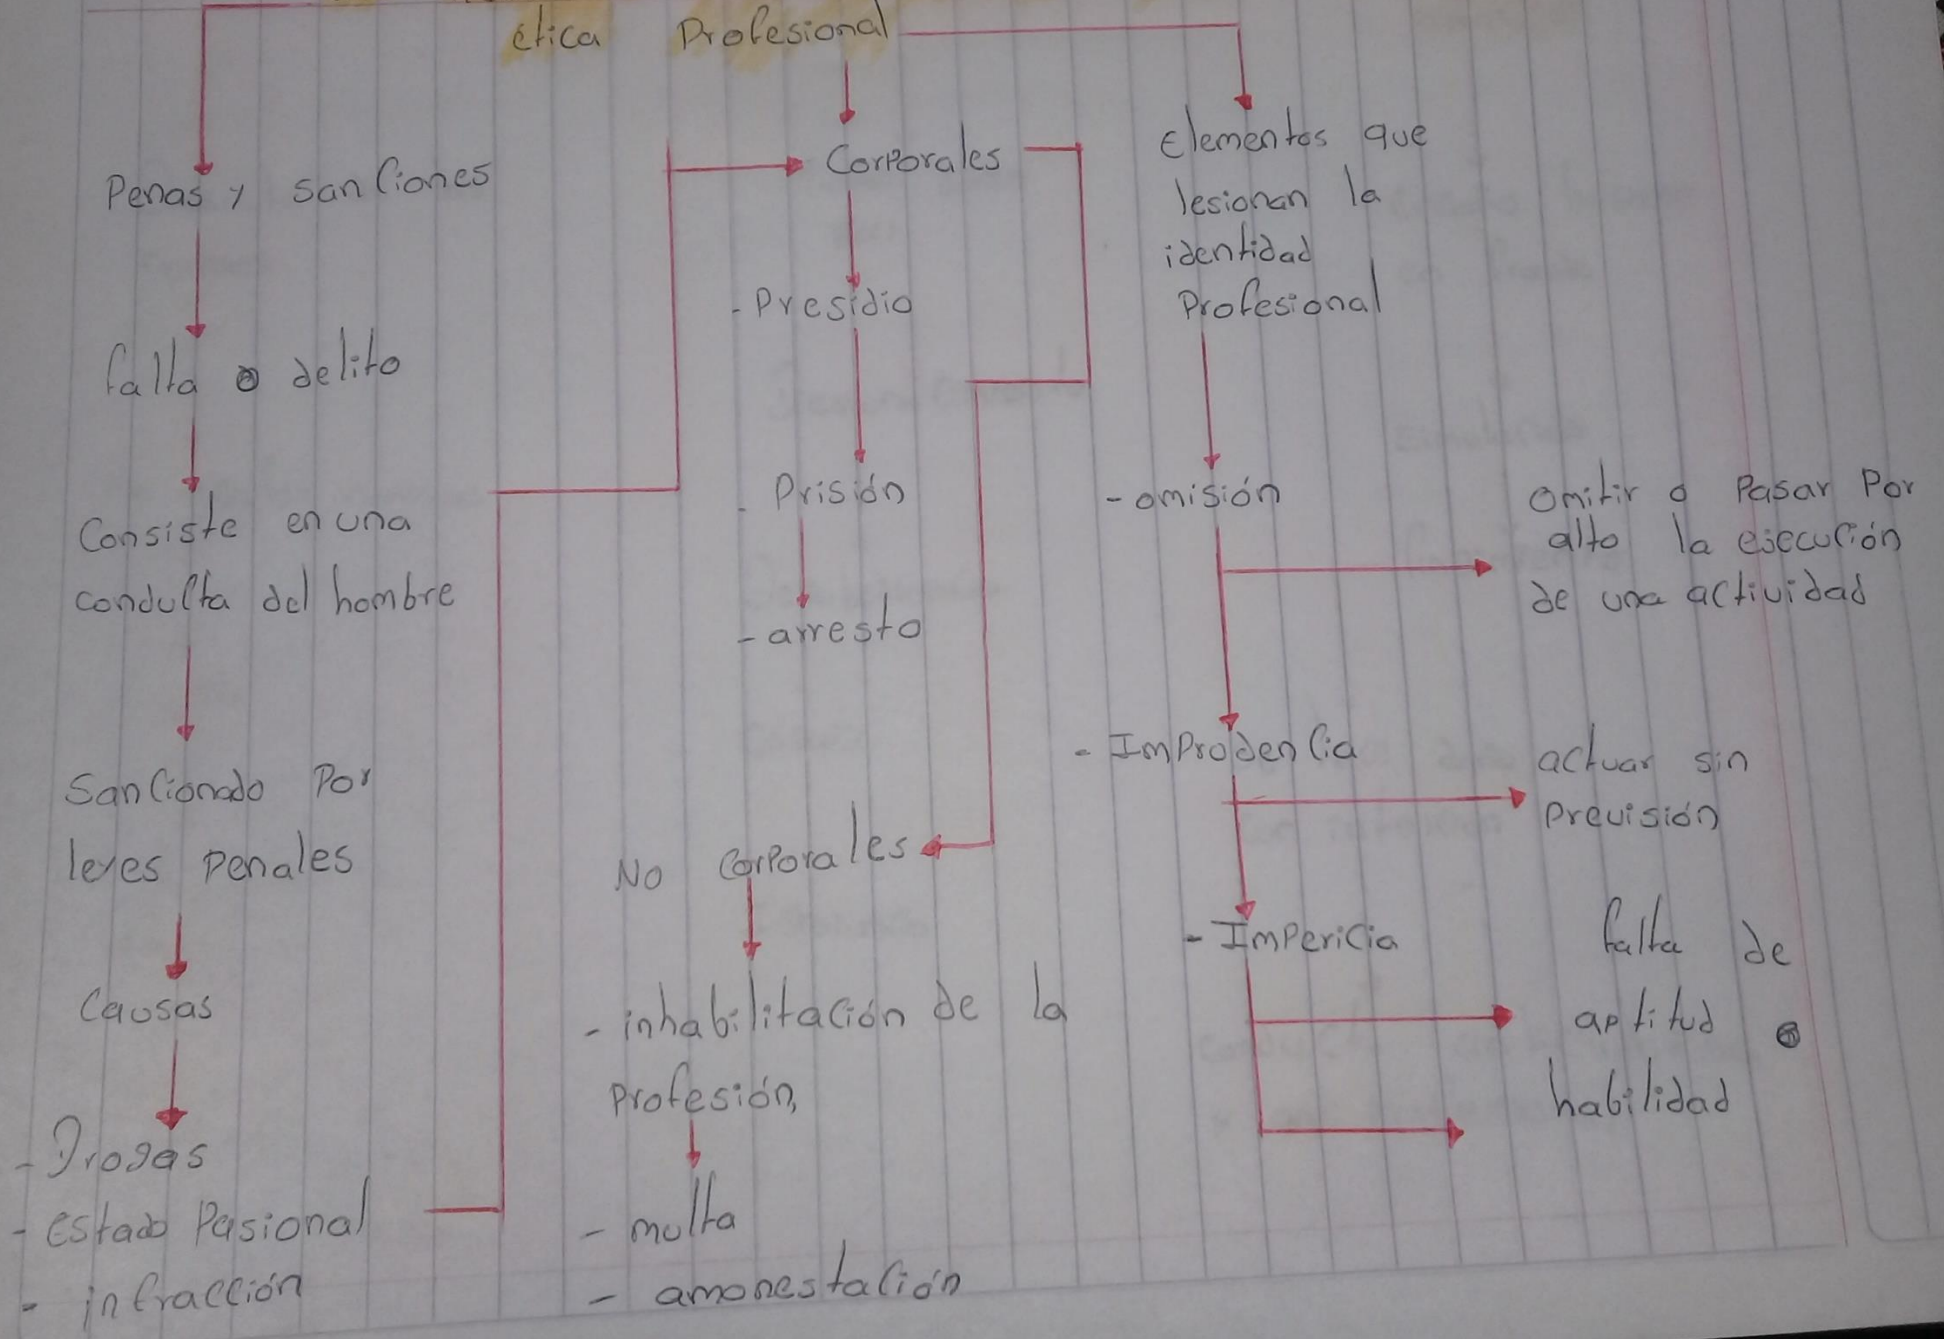 ética Profesional
Penas y sanciones
falla o delito
Consiste en una
conducta del hombre
Sancionado Por
leyes Penales
Causas
- Drogas
- Estado Pasional
- infracción
Corporales
- Presidio
- Prisión
- arresto
No Corporales
- inhabilitación de la
Profesión,
- multa
- amonestación
Elementos que
lesionan la
identidad
Profesional
- omisión
Omitir o Pasar Por
alto la ejecución
de una actividad
- Imprudencia
actuar sin
Previsión
- Impericia
falta de
aptitud o
habilidad